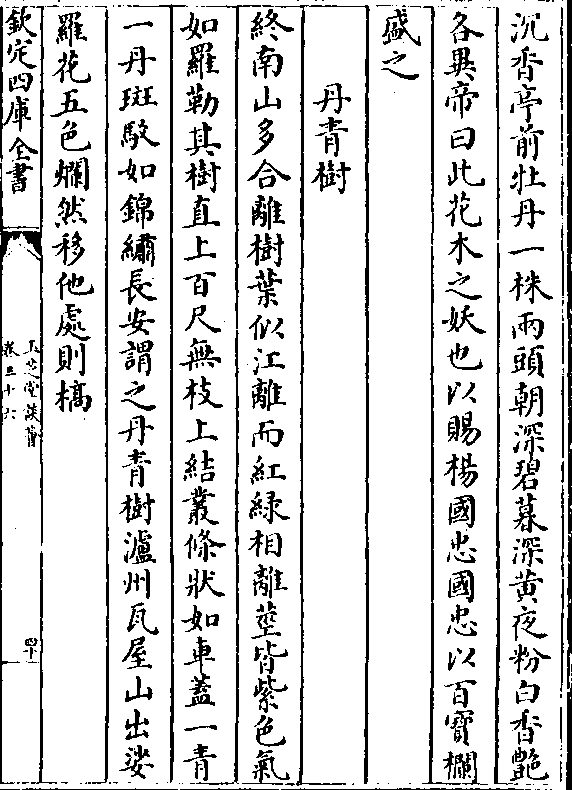 沉香亭前牡丹一株兩頭朝深碧暮深黃夜粉白香艷
各異帝曰此花木之妖也以賜楊國忠國忠以百寶欄
盛之
丹青樹
終南山多合離樹葉似江離而紅緑相離莖皆紫色氣
如羅勒其樹直上百尺無枝上結叢條狀如車蓋一青
一丹斑駮如錦繡長安謂之丹青樹瀘州瓦屋山出娑
羅花五色爛然移他處則槁
欽定四庫全書
玉芝堂談薈
卷三十六
四十